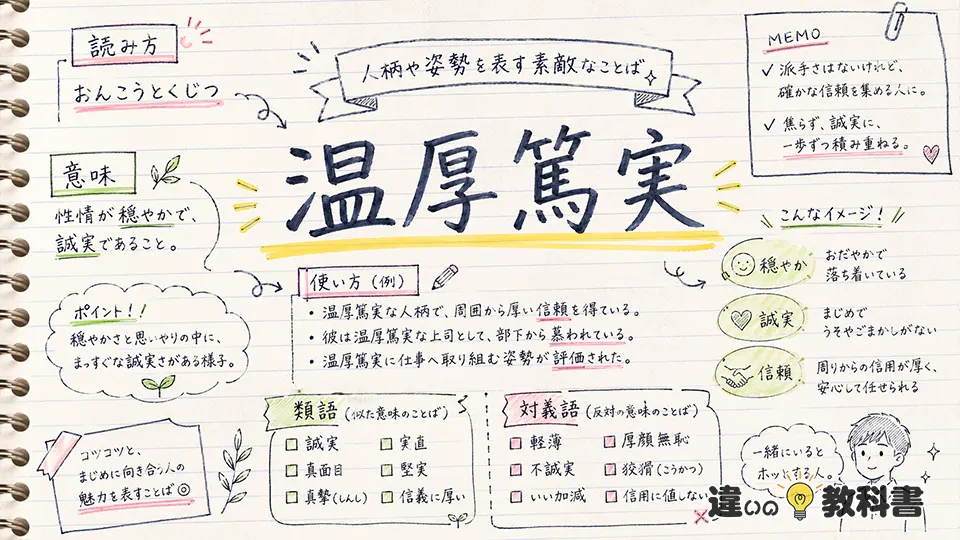 読み方
おんこうとくじつ
人柄や姿勢を表す素敵なことば
MEMO
✓ 派手さはないけれど、
確かな信頼を集める人に。
✓ 焦らず、誠実に、
一歩ずつ積み重ねる。
温厚篤実
意味
性情が穏やかで、
誠実であること。
ポイント!!
穏やかさと思いやりの中に、
まっすぐな誠実さがある様子。
使い方(例)
・温厚篤実な人柄で、周囲から厚い信頼を得ている。
・彼は温厚篤実な上司として、部下から慕われている。
・温厚篤実に仕事へ取り組む姿勢が評価された。
こんなイメージ!
穏やか
おだやかで
落ち着いている
誠実
まじめで
うそやごまかしがない
信頼
周りからの信用が厚く、
安心して任せられる
コツコツと、
まじめに向き合う人の
魅力を表すことば◎
類語(似た意味のことば)
誠実
実直
真面目
堅実
真摯(しんし)
信義に厚い
対義語(反対の意味のことば)
軽薄
厚顔無恥
不誠実
狡猾(こうかつ)
いい加減
信用に値しない
一緒にいると
ホッとする人。
違いの教科書